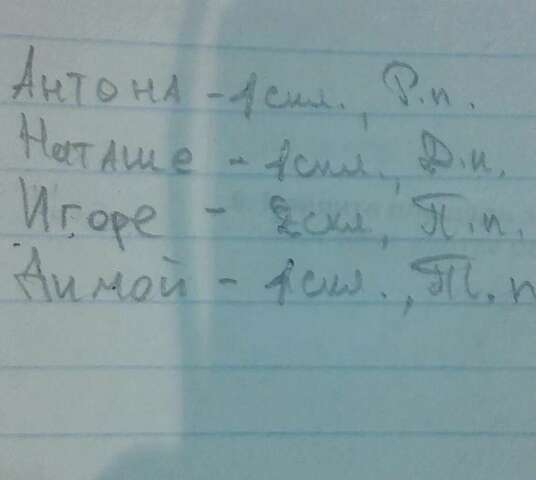 Антона - 1 скл., Р.п.
Наташе - 1 скл., Д.п.
Игоре - 2 скл., П.п.
Димой - 1 скл., Т.п